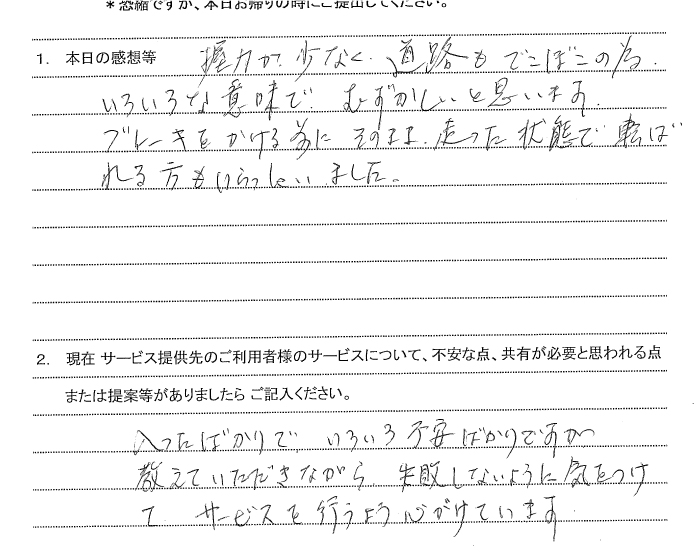 *恐縮ですが、本日お帰りの時にご提出してください。
1. 本日の感想等 握力が少なく、道路もでこぼこの為、
いろいろな意味で、むずかしいと思います。
ブレーキをかける為に そのまま、走った状態で転ば
れる方もいらっしゃいました。
2. 現在 サービス提供先のご利用者様のサービスについて、不安な点、共有が必要と思われる点
または提案等がありましたら ご記入ください。
入ったばかりで、いろいろ不安ばかりですが
教えていただきながら、失敗しないように気をつけ
て サービスを行うよう心がけています。